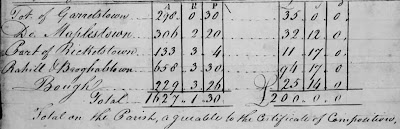 A R P
Tot. of Garrelstown 298 . 0 . 30 35 . 0 . 0
Do. Maplestown 306 . 2 . 20 32 . 12 . 0
Part of Rickelstown 133 . 3 . 4 11 . 17 . 0
Rahill & Broghalstown 658 . 3 . 30 94 . 17 . 0
Bough 229 . 3 . 26 25 . 14 . 0
Total 1627 . 1 . 30 £200 . 0 . 0
Total on the Parish, agreeable to the Certificate of Composition,